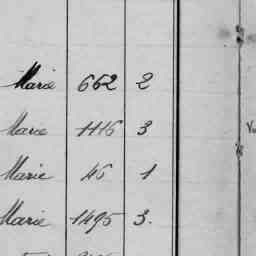 Marie 662 2
Marie 1116 3
Marie 45 1
Marie 1495 3.